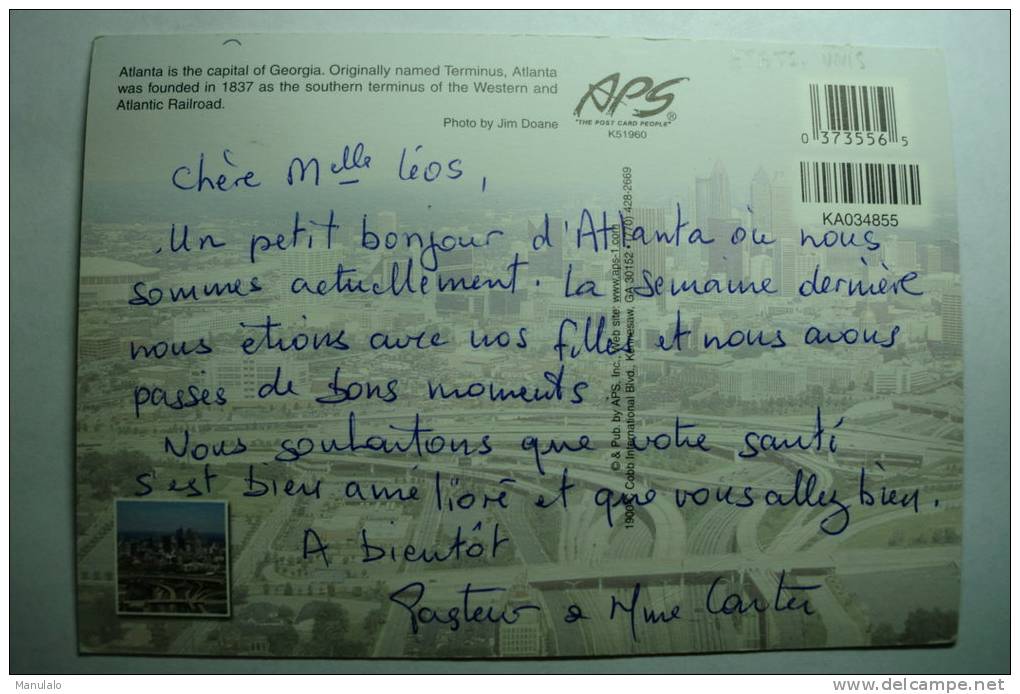 Atlanta is the capital of Georgia. Originally named Terminus, Atlanta
was founded in 1837 as the southern terminus of the Western and
Atlantic Railroad.
Photo by Jim Doane
APS®
"THE POST CARD PEOPLE"
K51960
0 373556 5
KA034855
© & Pub. by APS, Inc., Web site: www.aps-1.com
1900 Cobb International Blvd., Kennesaw, GA 30152 • (770) 428-2669
Chère Melle Léos,
Un petit bonjour d'Atlanta où nous
sommes actuellement. La semaine dernière
nous étions avec nos filles et nous avons
passés de bons moments
Nous souhaitons que votre santé
s'est bien amélioré et que vous allez bien.
A bientôt
Pasteur & Mme Carter
Manulalo
www.delcampe.net